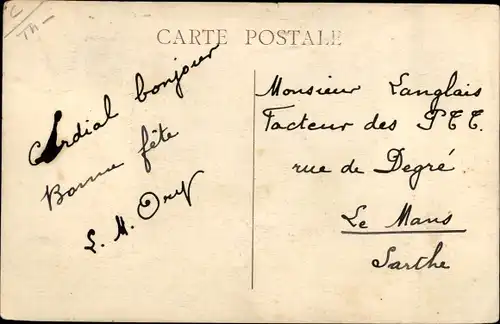 C
Th —
CARTE POSTALE
Cordial bonjour
Bonne fête
L. M. Ory
Monsieur Langlais
Facteur des PTT.
rue de Degré
Le Mans
Sarthe